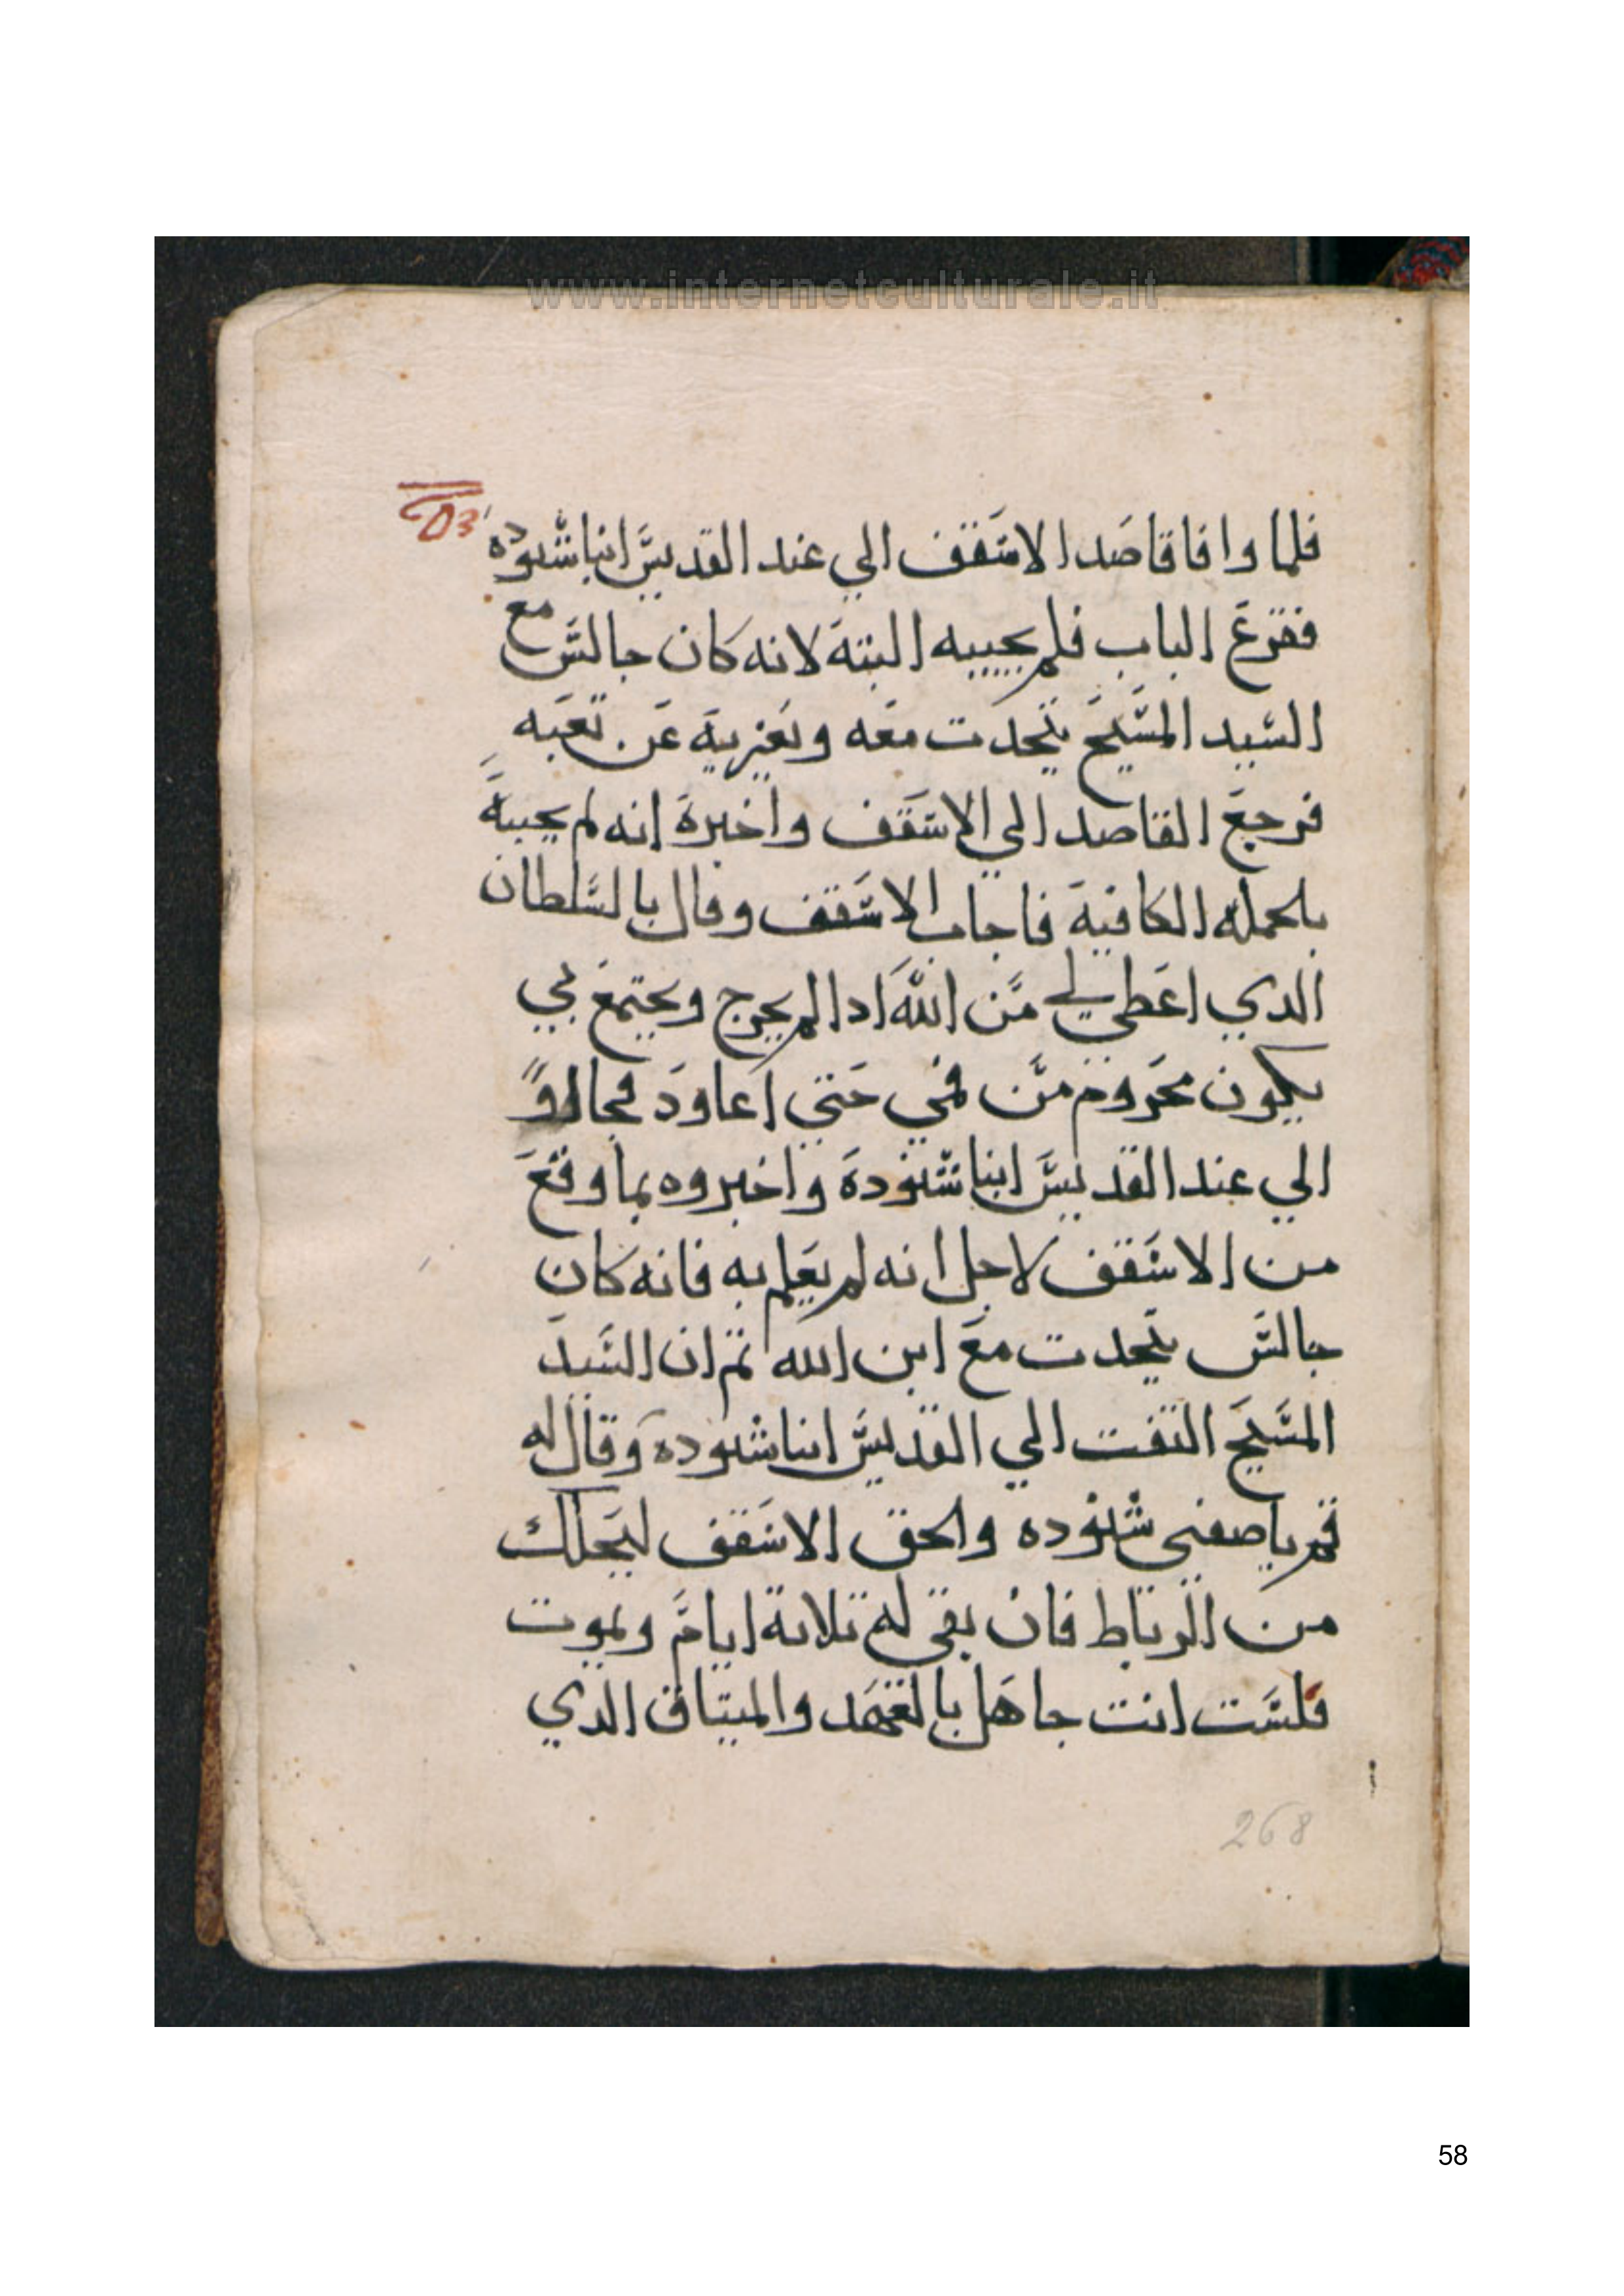 www.internetculturale.it
فلما وافا قاصد الاسقف الي عند القديس انبا شنوده
فقرع الباب فلم يجيبه البتة لانه كان جالس مع
السيد المسيح يتحدت معه ويعزيه عن تعبه
فرجع القاصد الي الاسقف واخبره انه لم يجيبه
بالجمله الكافية فاجاب الاسقف وقال بالسلطان
الدي اعطي لي من الله ادا لم يخرج ويجتمع بي
يكون محروم من فمي حتي اعاود فجاوا
الي عند القديس انبا شنوده واخبروه بما وقع
من الاسقف لاجل انه لم يعلم به فانه كان
جالس يتحدت مع ابن الله تم ان السيد
المسيح التفت الي القديس انبا شنوده وقال له
قم يا صفيي شنوده والحق الاسقف ليحللك
من الرباط فان بقي له تلاتة ايام ويموت
فلست انت جاهل بالعهد والميتاق الدي
268
58